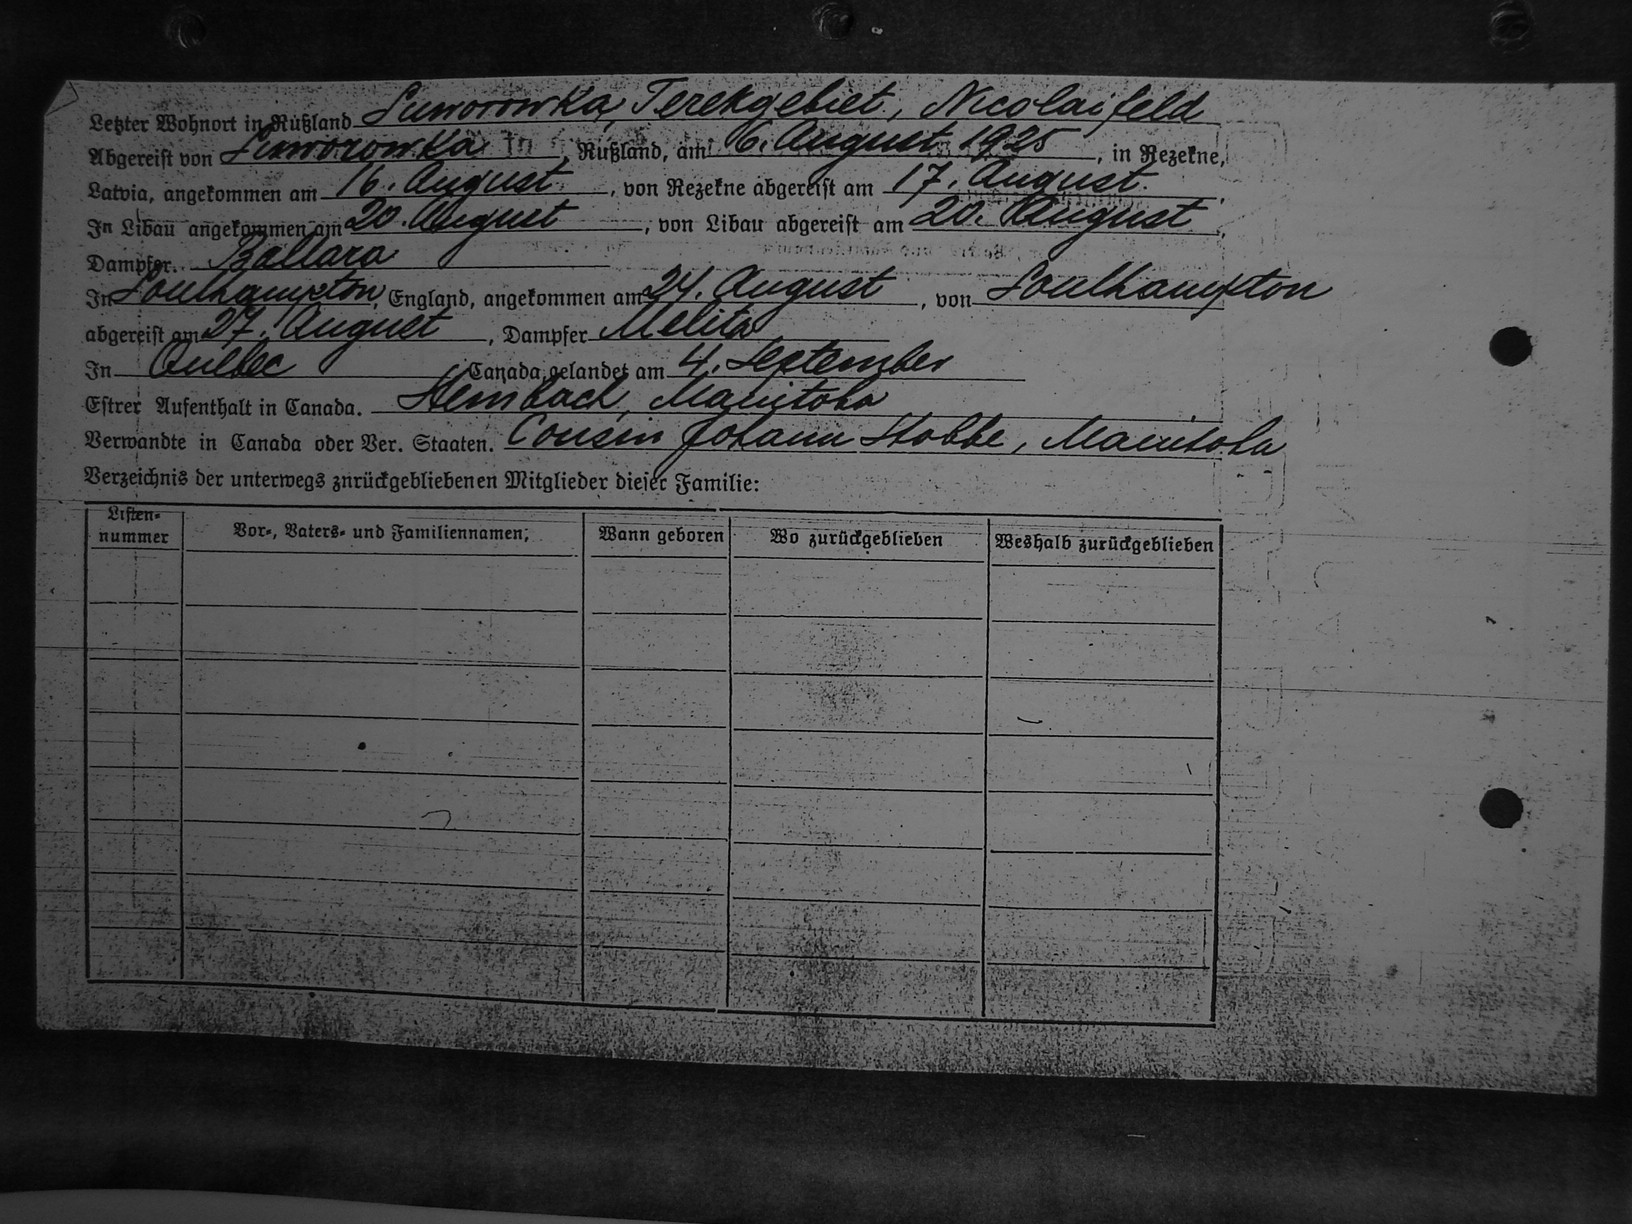 Letzter Wohnort in Rußland Suworowka, Terekgebiet, Nicolaifeld
Abgereist von Suworowka, Rußland, am 6. August 1925, in Rezekne,
Latvia, angekommen am 16. August, von Rezekne abgereist am 17. August.
In Libau angekommen am 20. August, von Libau abgereist am 20. August,
Dampfer. Baltara
In Southampton, England, angekommen am 24. August, von Southampton
abgereist am 27. August, Dampfer Melita
In Quebec, Canada gelandet am 4. September
Estrer Aufenthalt in Canada. Steinbach, Manitoba
Verwandte in Canada oder Ver. Staaten. Cousin Johann Stobbe, Manitoba
Verzeichnis der unterwegs znrückgebliebenen Mitglieder dieser Familie:
Listen-nummer Vor-, Vaters- und Familiennamen, Wann geboren Wo zurückgeblieben Weshalb zurückgeblieben